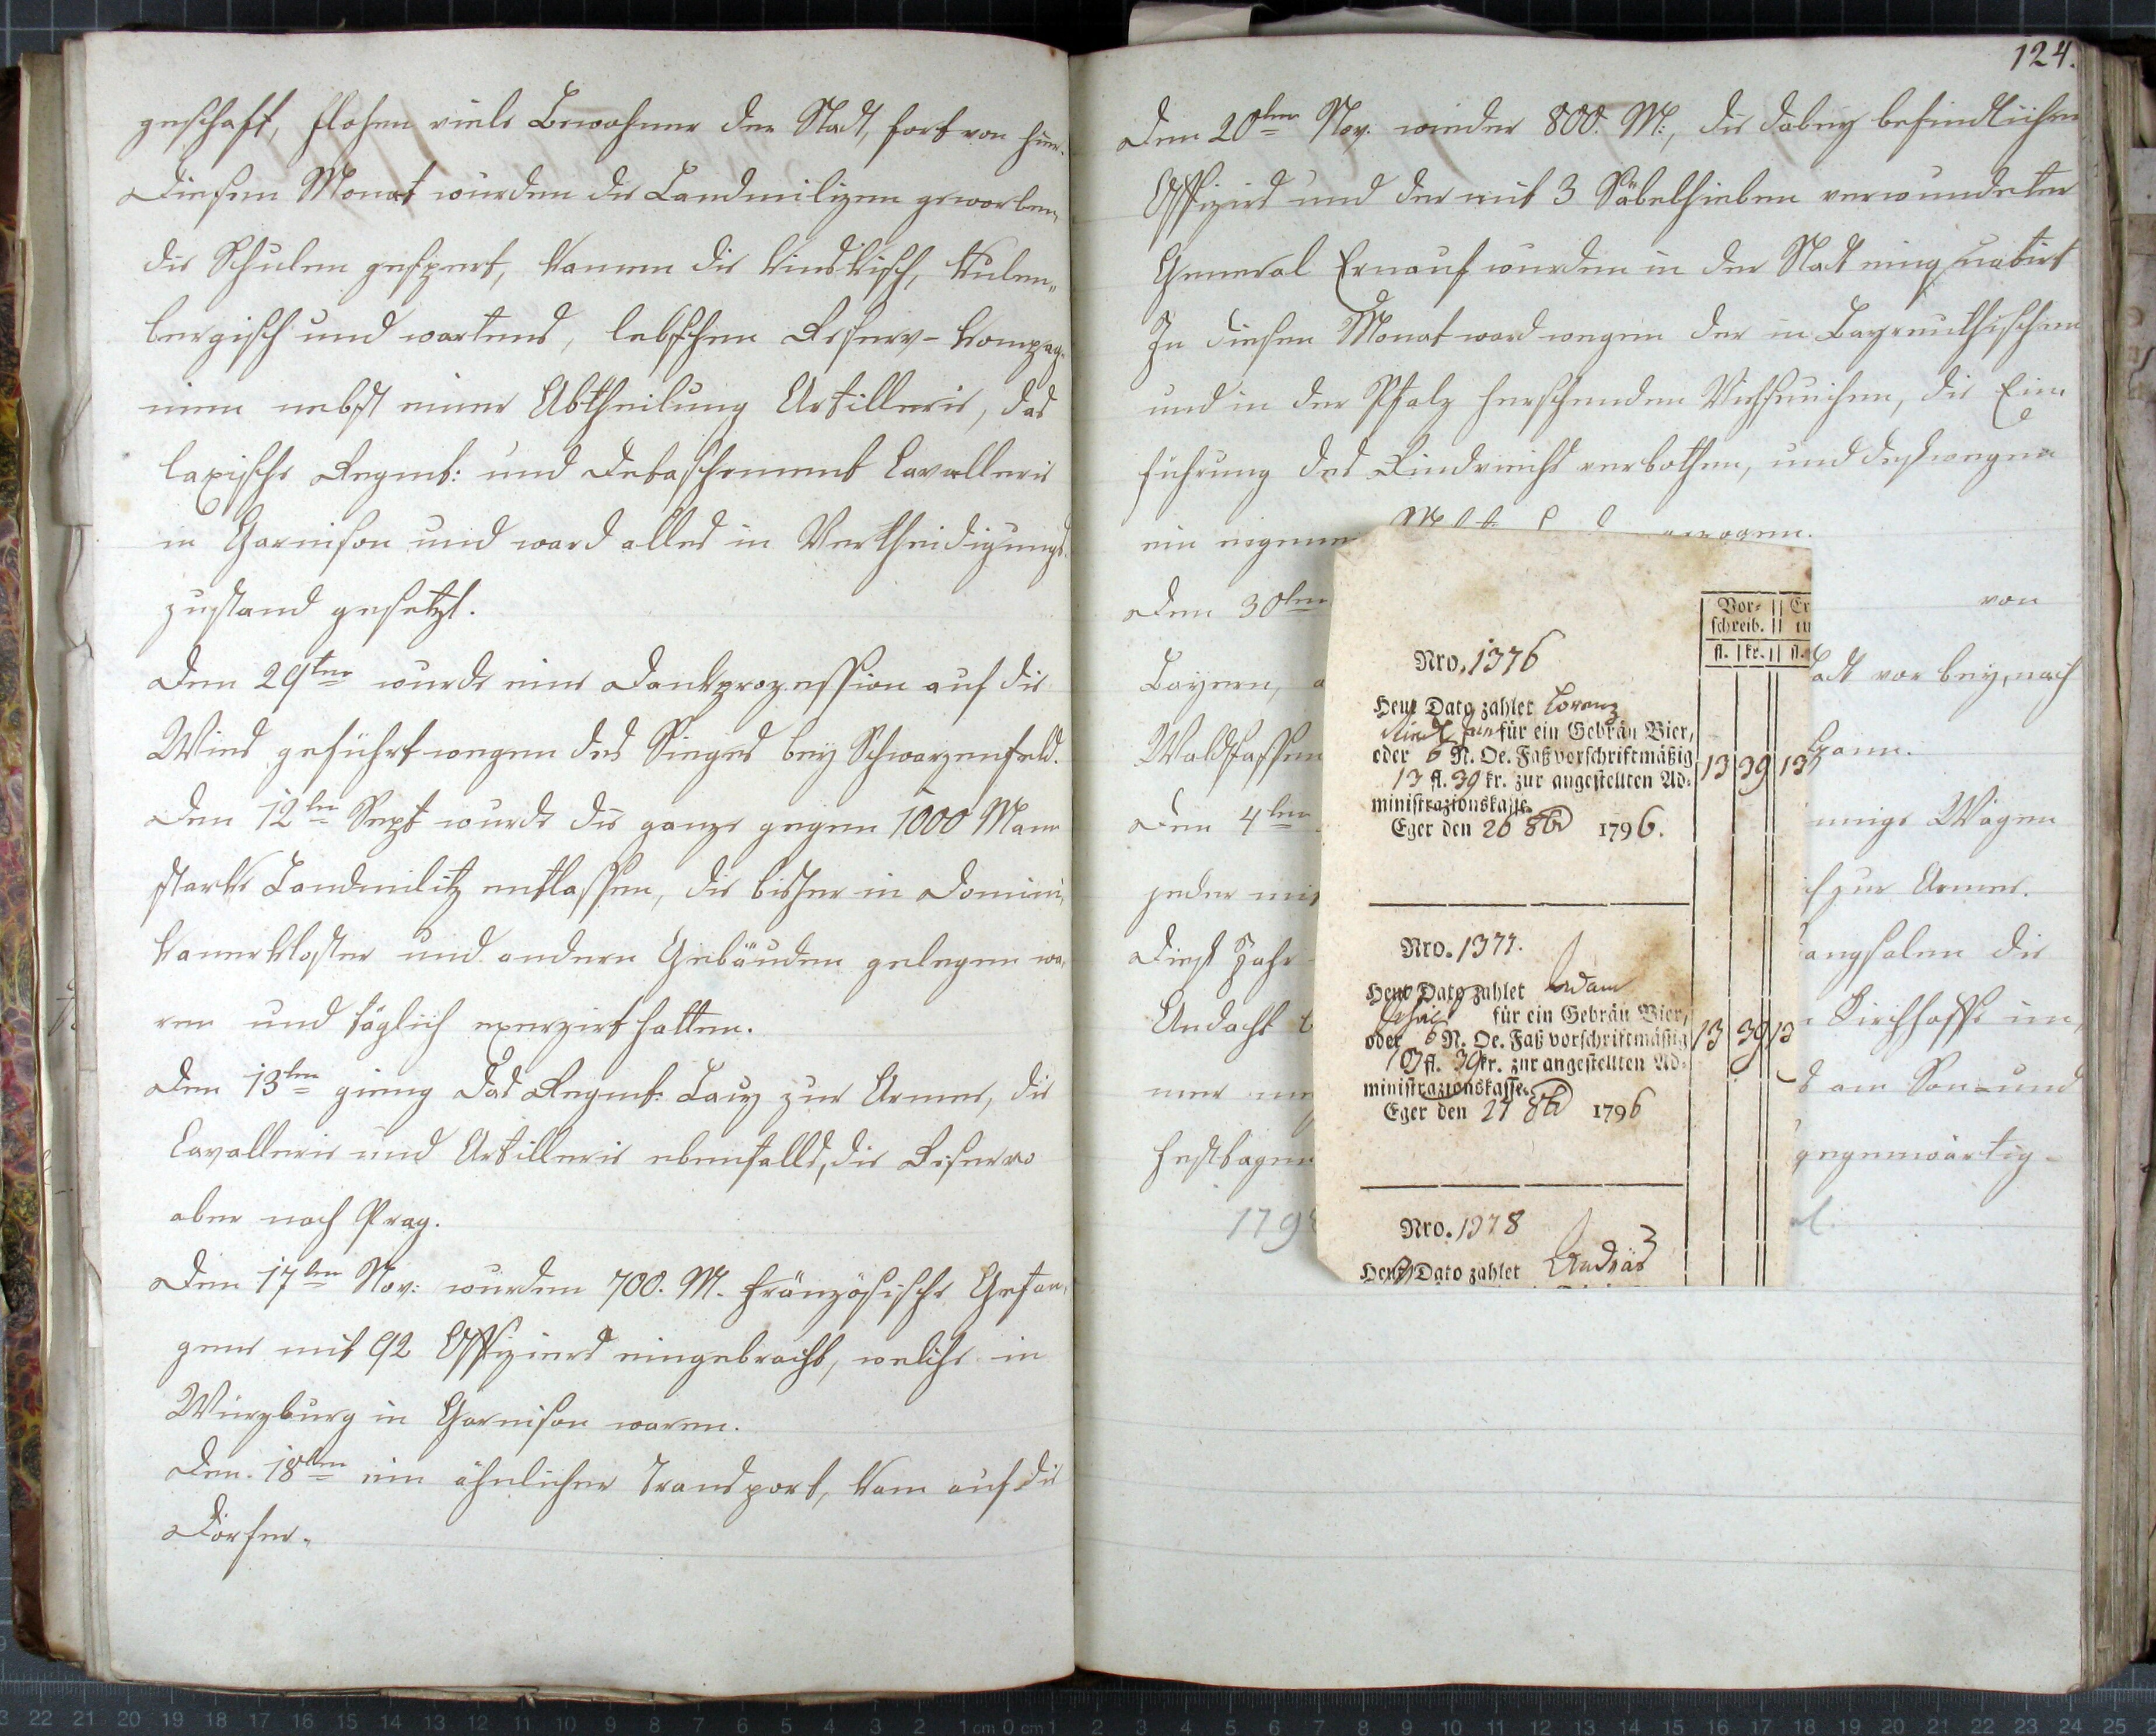 geschaft, flohen viele Bewohner der Stadt, fort von hier.
Diesen Monat wurden die Landmilizen geworben,
die Schulen gespert, kamen die Kinskisch, Kulen„
bergisch und wartens, lebschen Reserv-Kompag-
nien nebst einer Abtheilung Artillerie, das
laxische Regmt: und Detaschement Cavallerie
in Garnison und ward alles in Vertheidigungs-
zustand gesetzt.
Den 29ten wurde eine Dankprozession auf die
Wies geführt wegen des Sieges bey Schwarzenfeld.
Den 12ten Sept wurde die ganze gegen 1000 Mann
starke Landmilitz entlassen, die bisher in Domini,
kanerkloster und andern Gebäuden gelegen wa,
ren und täglich exerzirt hatten.
Den 13ten gieng das Regmt: Lacy zur Armee, die
Cavallerie und Artillerie ebenfalls, die Reserve
aber nach Prag.
Den 17ten Nov: wurden 700. M. französische Gefan,
gene mit 92 Offiziers eingebracht, welche in
Würzburg in Garnison waren.
Den 18ten ein ähnlicher Transport, kam auf die
Dörfer.
124.
Den 20ten Nov: wieder 800. M:, die dabey befindlichen
Offiziers und der mit 3 Säbelhieben verwundeter
General Ernauf wurden in der Stadt einquatirt
In diesen Monat ward wegen der in Bayreuthischen
und in der Pfalz herschenden Viehseuchen, die Ein,
führung des Rindviehs verbothen, und deßwegen
ein eigener gezogen.
Den 30ten von
Bayern, Stadt vor bey, nach
Waldsassen
Den 4ten einige Wagen
jeder mit zur Armee.
Dieß Jahr Drangsalen die
Andacht Kirchhoffe im,
mer am Son- und
Festtagen gegenwärtig
179
Vor- Er
schreib. in
fl. kr. fl.
Nro. 1376
Heut Dato zahlet Lorenz
für ein Gebräu Bier,
oder 6 N. Oe. Faß vorschriftmäßig 13 39 13
13 fl. 39 kr. zur angestellten Ad-
ministrazionskasse.
Eger den 26 8br 1796.
Nro. 1377.
Heut Dato zahlet Adam
für ein Gebräu Bier,
oder 6 N. Oe. Faß vorschriftmäßig 13 39 13
13 fl. 39 kr. zur angestellten Ad-
ministrazionskasse.
Eger den 27 8br 1796
Nro. 1378
Heut Dato zahlet Andreas